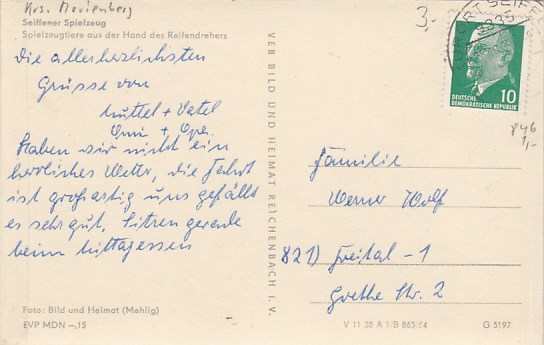 Krs. Marienberg
Seiffener Spielzeug
Spielzeugtiere aus der Hand des Reifendrehers
Die allerherzlichsten
Grüsse von
Muttel + Vatel
Omi + Opi.
Haben wir nicht ein
herrliches Wetter, die Fahrt
ist großartig uns gefällt
es sehr gut. Sitzen gerade
beim Mittagessen
Foto: Bild und Heimat (Mehlig)
EVP MDN –,15
VEB BILD UND HEIMAT REICHENBACH I. V.
3,-
KURORT SEIFFEN
9335
10
DEUTSCHE
DEMOKRATISCHE REPUBLIK
846
1,-
Familie
Werner Wolf
821) Freital - 1
Goethe Str. 2
V 11 28 A 1/B 865/64
G 5197